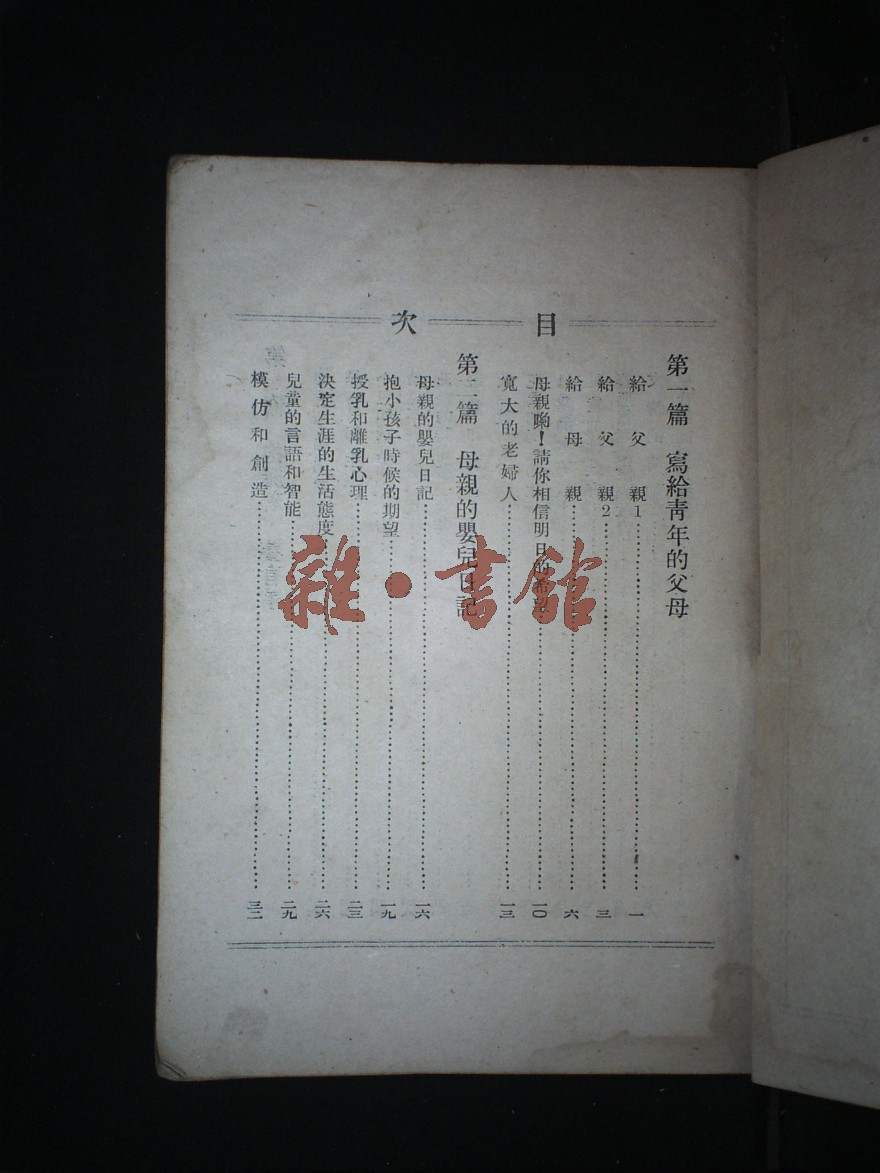 目次
第一篇 寫給青年的父母
給父親1……一
給父親2……三
給母親……六
母親喲！請你相信明日的希望……一〇
寬大的老婦人……一三
第二篇 母親的嬰兒日記
母親的嬰兒日記……一六
抱小孩子時候的期望……一九
授乳和離乳心理……二三
決定生涯的生活態度……二六
兒童的言語和智能……二九
模仿和創造……三二
雜·書館